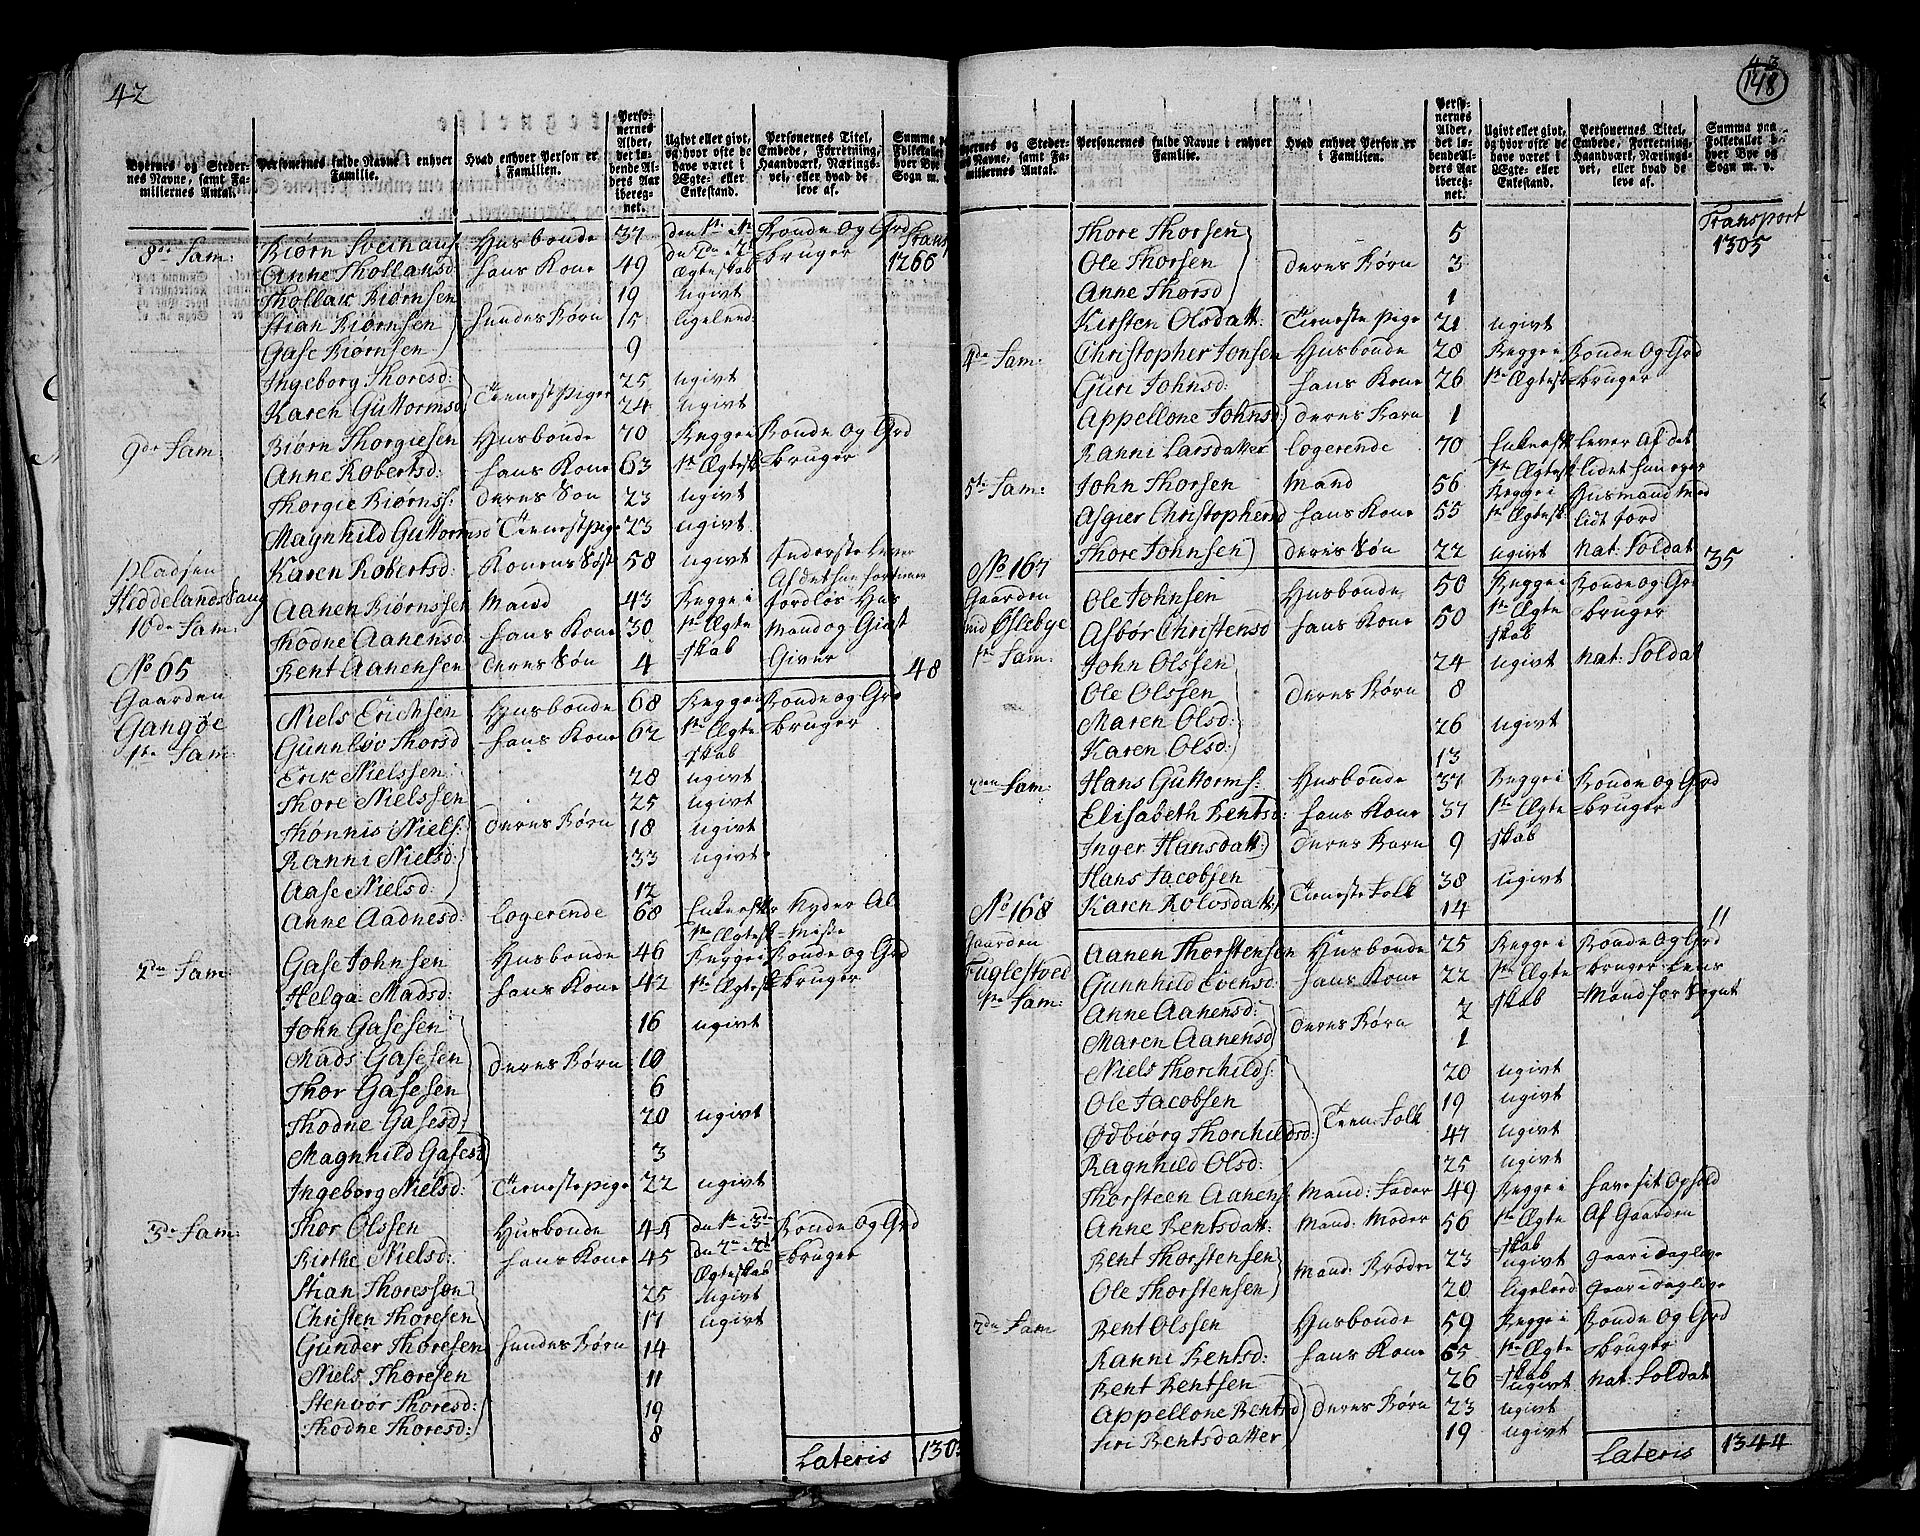 42
Byernes og Stedernes Navne, samt Familiernes Antal.
Personernes fulde Navne i enhver Familie.
Hvad enhver Person er i Familien.
Personernes Alder, det løbende Alders Aar iberegnet.
Ugivt eller givt, og hvor ofte de have været i Ægte- eller Enkestand.
Personernes Titel, Embede, Forretning, Haandværk, Næringsvei, eller hvad de leve af.
Summa paa Folketallet
Transp 1266
8de Fam: Biørn Sveinaus Husbonde 37 den 1te i 1te Bonde og Grd
Anne Thollaksd hans Kone 49 den 2den i 2d Ægteskab bruger
Thollak Biørnsen 19 ugivt
Stian Biørnsen hendes Børn 15 ligeled
Gase Biørnsen 9
Ingeborg Thoresd: 25 ugivt
Karen Guttormsd Tienestpiger 24 ugivt
9de Fam Biørn Thorgiesen Husbonde 70 Begge i Bonde og Grd
Anne Robertsd: hans Kone 63 1te Ægtesk bruger
Thorgie Biørnss: deres Søn 23 ugivt
Magnhild Guttormsd Tienestpige 23 ugivt
Karen Robertsd: Konens Søst 58 ugivt Inderste Lever
Af det hun fortiener
Pladsen
Heddelands
10de Fam: Aanen Biørnssen Mand 43 Begge i Jordløs Hus
Thodne Aanensd: hans Kone 30 1te Ægte Mand og Giest
Bent Aanensen deres Søn 4 skab Giver 48
No 65
Gaarden
Gangøe
1te Fam Niels Erichsen Husbonde 68 Begge i Bonde og Grd
Gunnløv Thorsd hans Kone 62 1te Ægte skab bruger
Erik Nielssen: 28 ugivt
Thore Nielssen 25 ugivt
Thønnis Niels: deres Børn 18 ugivt
Ranni Nielsd: 33 ugivt
Aase Nielsd: 12
Anne Aadnesd: logerende 68 Enke efter Nyder Al
1te Ægtesk misse
2den Fam: Gase Johnsen Husbonde 46 Begge i Bonde og Grd
Helga Madsd: hans Kone 42 1te Ægtesk bruger
John Gasesen 16 ugivt
Mads Gasesen deres Børn 10
Thor Gasesen 6
Thodne Gasesd: 20 ugivt
Magnhild Gasesd 3
Ingeborg Nielsd: Tienestepige 22 ugivt
3de Fam: Thor Olssen Husbonde 44 den 1te i 3de Bonde og Grd
Birthe Nielsd: hans Kone 45 den 2den i 2d Ægteskab bruger
Stian Thoressøn 25 ugivt
Christen Thoresen 17 ugivt
Gunder Thoresen hendes Børn 14
Niels Thoresen 11
Stenvør Thoresd: 19
Thodne Thoresd: 8
Lateris 1303
43
148
Byernes og Stedernes Navne, samt Familiernes Antal.
Personernes fulde Navne i enhver Familie.
Hvad enhver Person er i Familien.
Personernes Alder, det løbende Alders Aar iberegnet.
Ugivt eller givt, og hvor ofte de have været i Ægte- eller Enkestand.
Personernes Titel, Embede, Forretning, Haandværk, Næringsvei, eller hvad de leve af.
Summa paa Folketallet i hver Bye og Sogn m. v.
Transport 1305
Thore Thorsen 5
Ole Thorsen deres Børn 3
Anne Thorsd 1
Kirsten Olsdatt: Tieneste pige 21 ugivt
4de Fam: Christopher Jonsen Husbonde 28 Begge i Bonde og Grd
Guri Johnsd: hans Kone 26 1te Ægtesk bruger
Appellone Johnsd: deres Barn 1
Ranni Larsdatter logerende 70 Enke efter Lever Af det
1te Ægtesk lidet hun eyer
5te Fam: John Thorsen Mand 56 Begge i Husmand med
Asgier Christophersd hans Kone 55 1te Ægtesk: lidt Jord
Thore Johnsen deres Søn 22 ugivt Nat: Soldat 35
No 167
Gaarden
nid Øslebye
1te Fam: Ole Johnsen Husbonde 50 Begge i Bonde og Grd
Asbør Christensd hans Kone 50 1te Ægte skab bruger
John Olssen 24 ugivt Nat: Soldat
Ole Olssen deres Børn 8
Maren Olsd: 26 ugivt
Karen Olsd: 13
2den Fam: Hans Guttorms: Husbonde 37 Begge i Bonde og Grd
Elisabeth Bentsd: hans Kone 37 1te Ægte bruger
Inger Hansdatt: deres Barn 9 skab
Hans Jacobsen 38 ugivt
Karen Rolvsdatt: Tieneste Folk 14 11
No 168
Gaarden
Fuglestved
1te Fam: Aanen Thorstensen Husbonde 25 Begge i Bonde og Grd
Gunnhild Evensd: hans Kone 22 1te Ægte bruger Lens
Anne Aanensd: 2 skab Mand for Sognet
Maren Aanensd deres Børn 1
Niels Thorchilds: 20 ugivt
Ole Jacobsen 19 ugivt
Ødbiørg Thorchildsd: Tien: Folk 47 ugivt
Ragnhild Olsd: 25 ugivt
Thorsteen Aanens: Mand: Fader 49 Begge i have sit Ophold
Anne Bentsdatt: Mand: Moder 56 1te Ægte skab Af Gaarden
Bent Thorstensen 23 ugivt gaar i dagleye
Ole Thorstensen Mand: Brødre 20 ligeled gaar i dagleye
2den Fam Bent Olssen Husbonde 59 Begge i Bonde og Grd
Ranni Bentsd: hans Kone 65 1te Ægte skab bruger
Bent Bentsen 26 ugivt Nat: Soldat
Appellone Bentsd deres Børn 23 ugivt
Siri Bentsdatter 19 ugivt
Lateris 1344